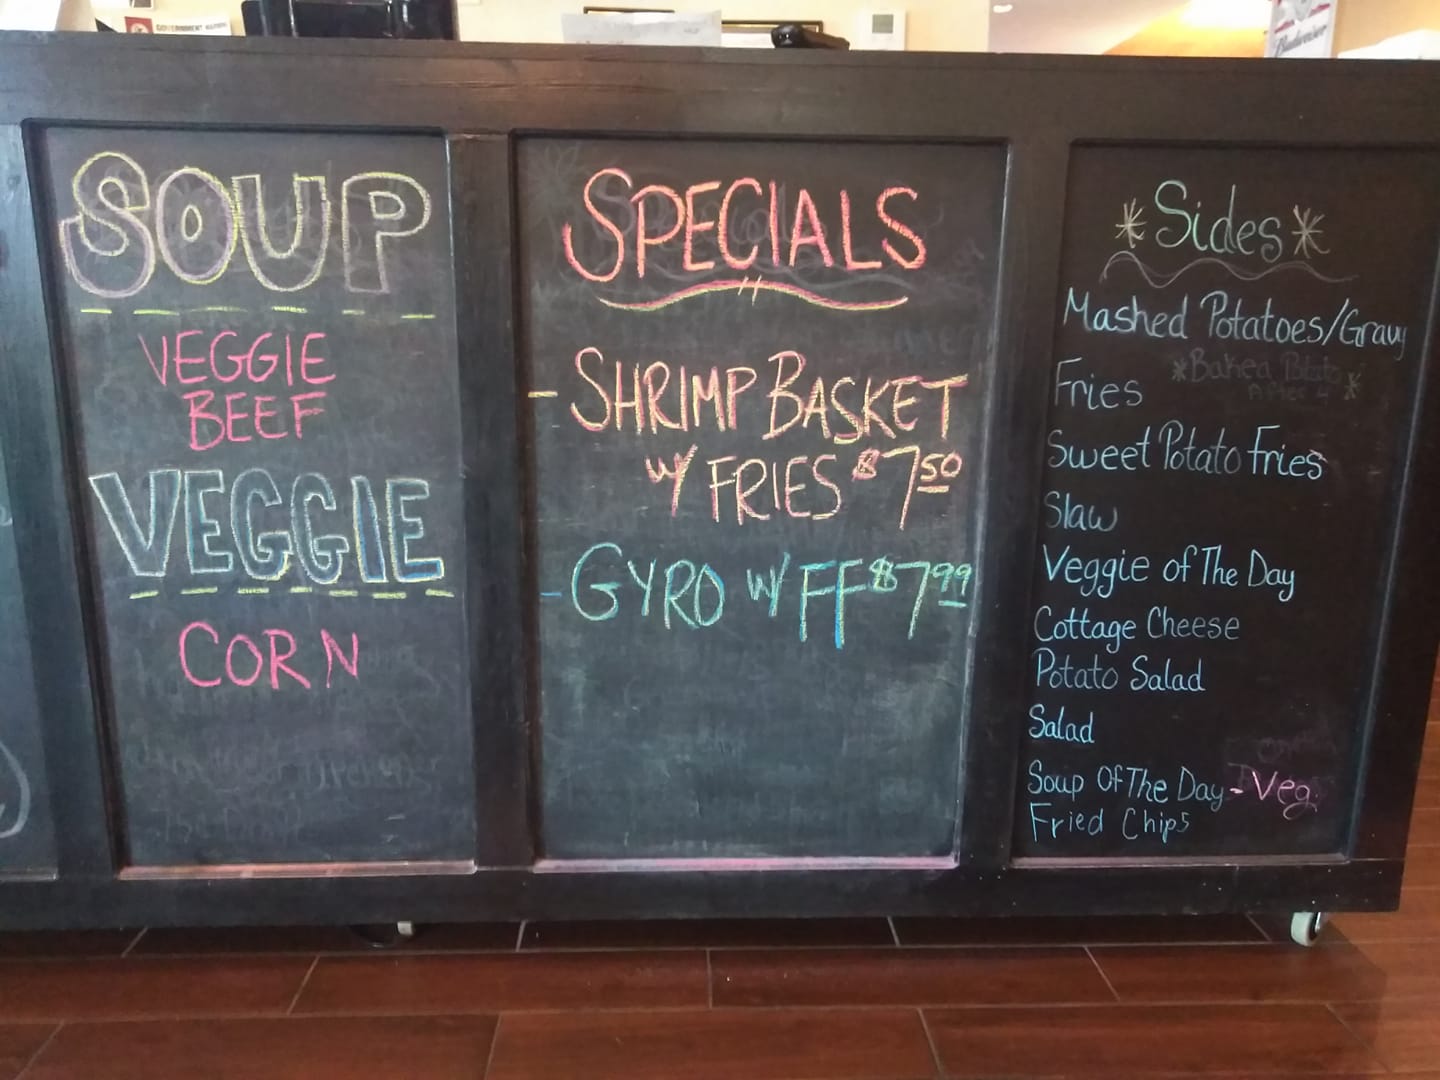 Budweiser
SOUP
VEGGIE
BEEF
VEGGIE
CORN
SPECIALS
- SHRIMP BASKET
W/ FRIES $7.50
- GYRO W/ FF $7.99
*Sides*
Mashed Potatoes/Gravy
*Baked Potato*
After 4
Fries
Sweet Potato Fries
Slaw
Veggie of The Day
Cottage Cheese
Potato Salad
Salad
Soup Of The Day - Veg.
Fried Chips